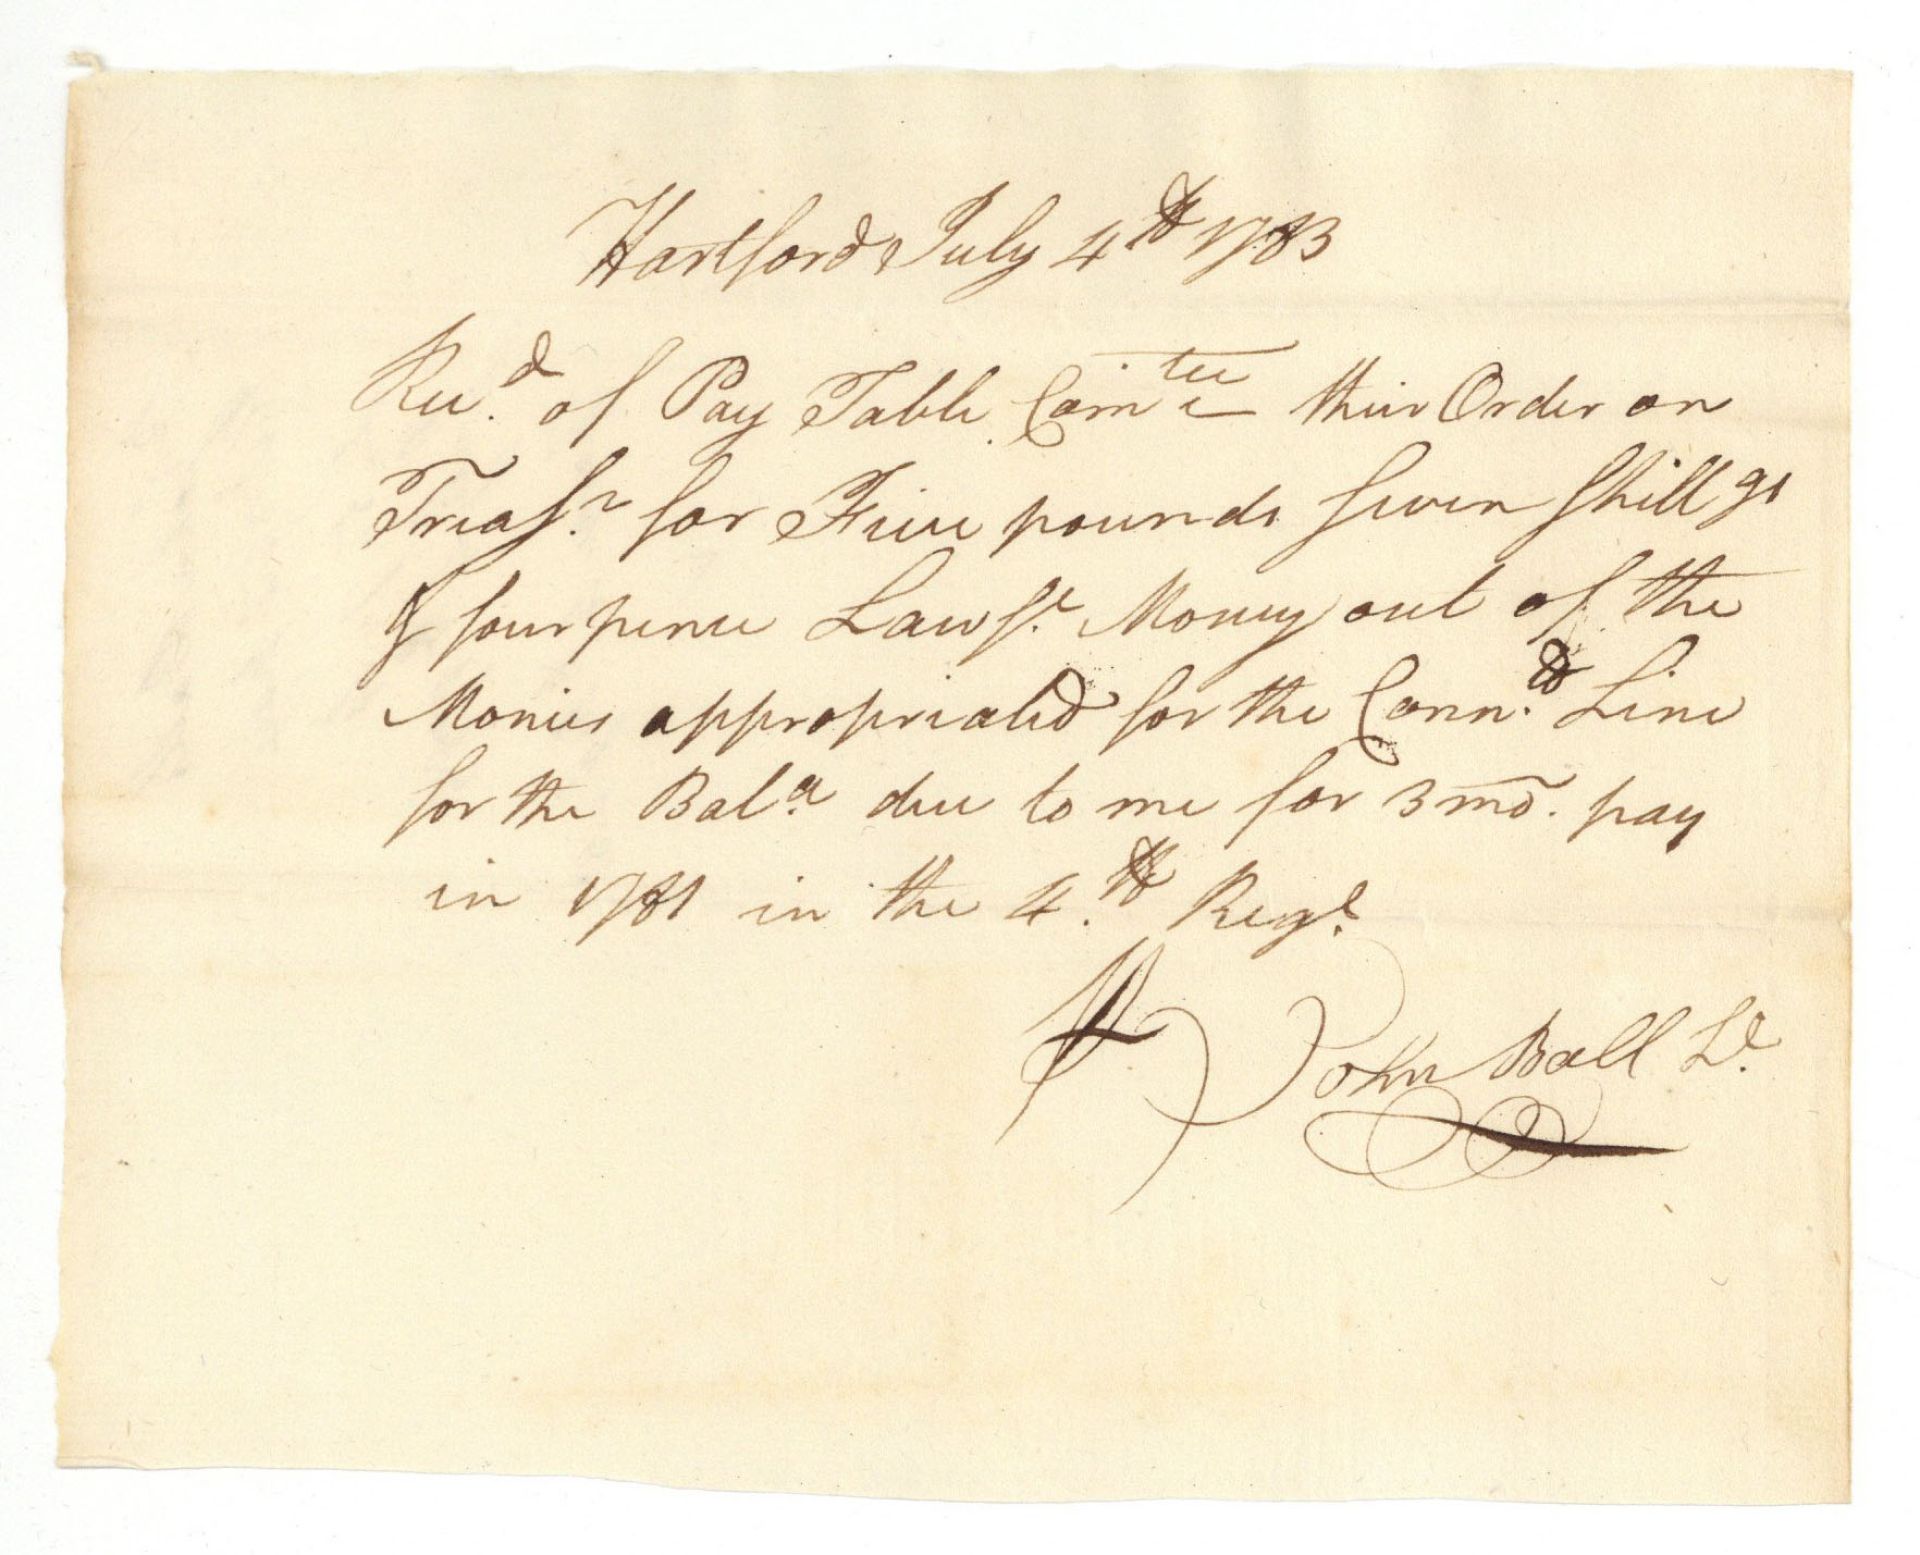 Hartford July 4th 1783
Recd. of Pay Table Comtee their Order on
Treasr. for Five pounds seven shillgs
& four pence Lawfl. Money out of the
Monies appropriated for the Connt. Line
for the Bala. due to me for 3 mo. pay
in 1781 in the 4.th Regt.
John Ball Lt.